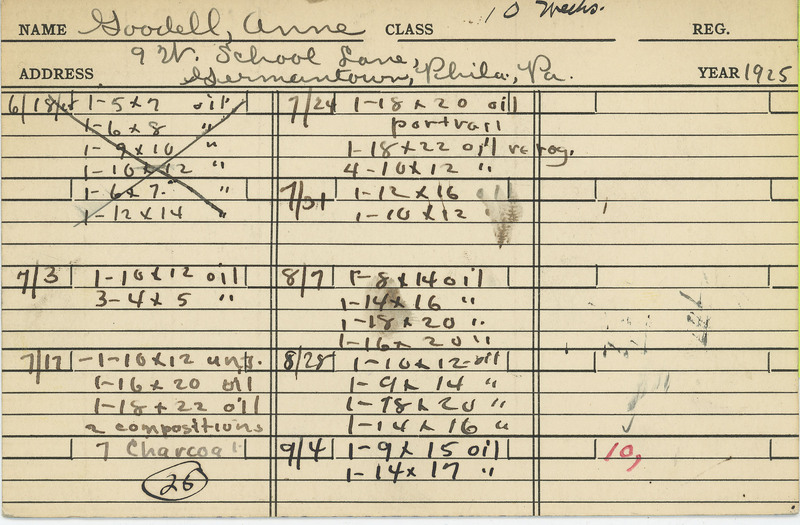 NAME Goodell, Anne CLASS 10 Weeks. REG.
9 W. School Lane,
ADDRESS Germantown, Phila, Pa. YEAR 1925
6/18 1-5x7 oil
1-6x8 "
1-9x10 "
1-10x12 "
1-6x7 "
1-12x14 "
7/3 1-10x12 oil
3-4x5 "
7/17 -1-10x12
1-16x20 oil
1-18x22 oil
2 compositions
7 Charcoal
26
7/24 1-18x20 oil
portrait
1-18x22 oil
4-10x12 "
7/31 1-12x16 oil
1-10x12 "
8/7 1-8x14 oil
1-14x16 "
1-18x20 "
1-16x20 "
8/28 1-10x12-oil
1-9x14 "
1-18x20 "
1-14x16 "
9/4 1-9x15 oil
1-14x17 "
10,